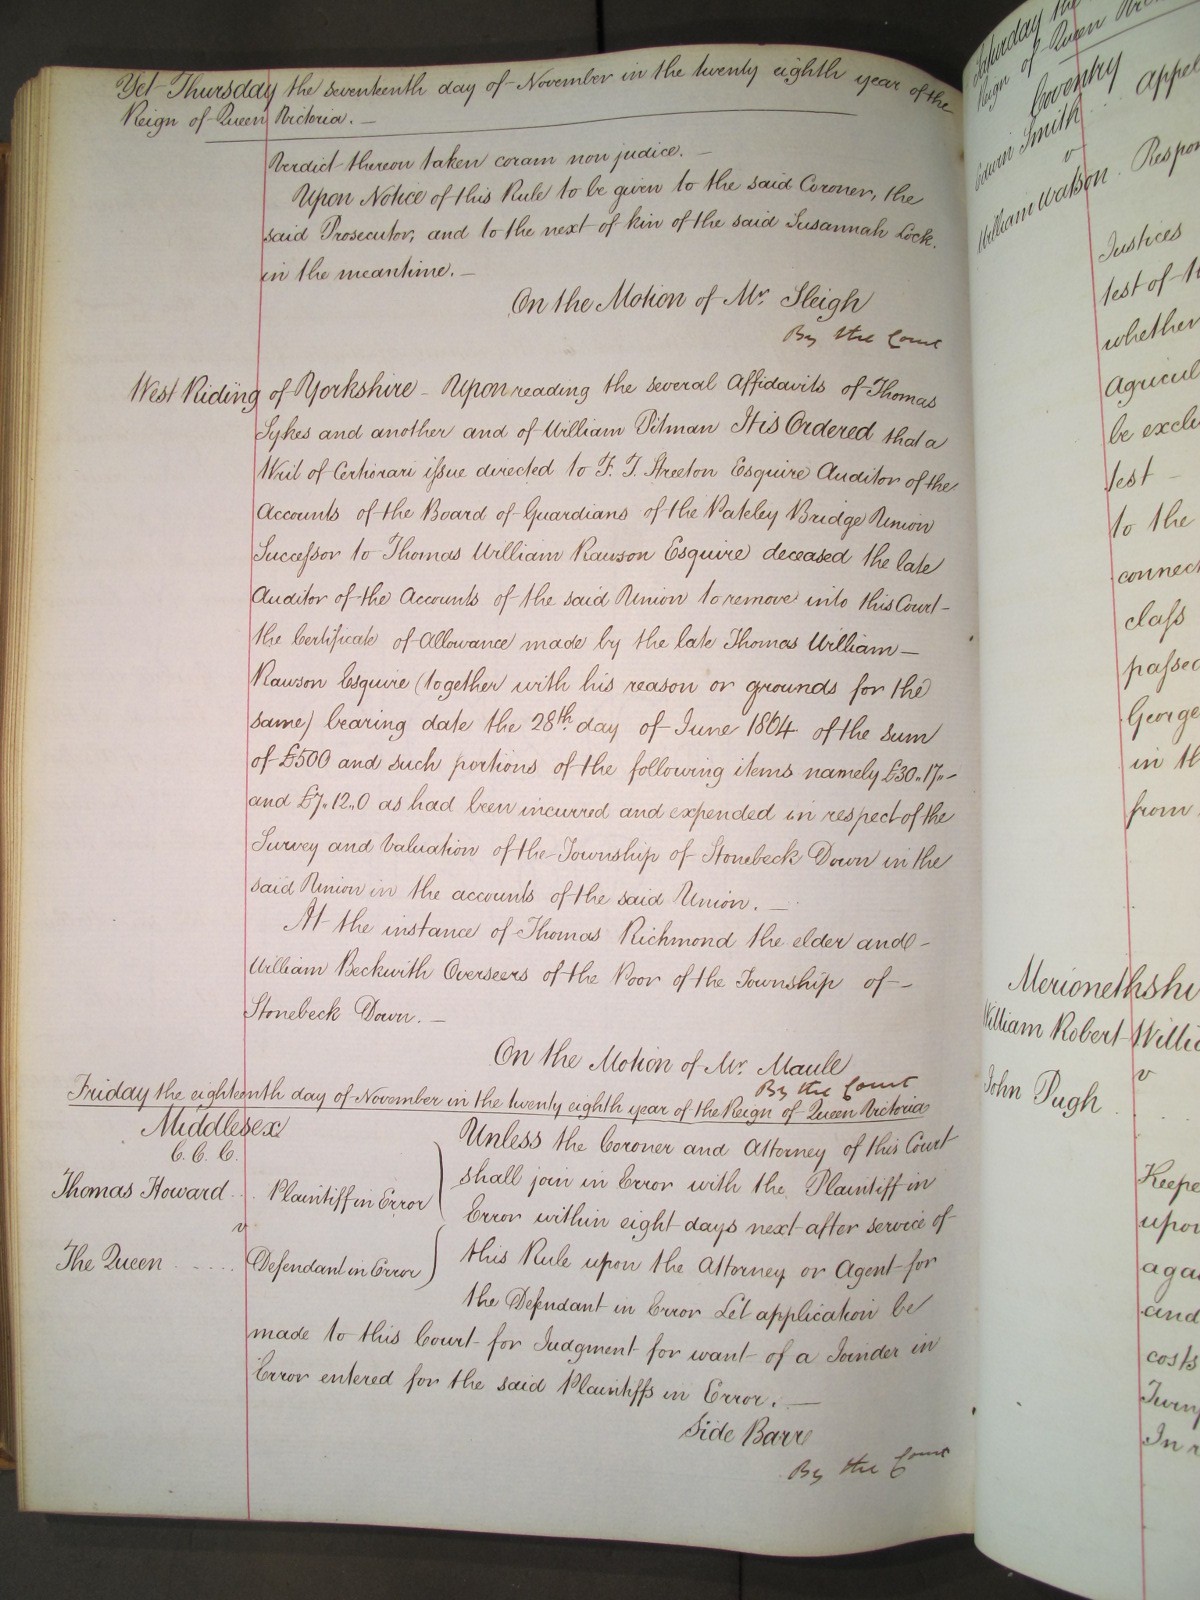 Yet Thursday the seventeenth day of November in the twenty eighth year of the
Reign of Queen Victoria. —
Verdict thereon taken coram non judice. —
Upon Notice of this Rule to be given to the said Coroner, the
said Prosecutor, and to the next of kin of the said Susannah Lock.
in the meantime. —
On the Motion of Mr. Sleigh
By the Court
West Riding of Yorkshire - Upon reading the several Affidavits of Thomas
Sykes and another and of William Pitman It is Ordered that a
Writ of Certiorari issue directed to F. T. Streeton Esquire Auditor of the
Accounts of the Board of Guardians of the Pateley Bridge Union
Successor to Thomas William Rawson Esquire deceased the late
Auditor of the Accounts of the said Union to remove into this Court -
the Certificate of Allowance made by the late Thomas William —
Rawson Esquire (together with his reason or grounds for the
same) bearing date the 28th day of June 1864 of the sum
of £500 and such portions of the following items namely £30.,17.,-
and £7.,12.,0 as had been incurred and expended in respect of the
Survey and Valuation of the Township of Stonebeck Down in the
said Union in the accounts of the said Union. —
At the instance of Thomas Richmond the elder and -
William Beckwith Overseers of the Poor of the Township of -
Stonebeck Down. —
On the Motion of Mr. Maule
By the Court
Friday the eighteenth day of November in the twenty eighth year of the Reign of Queen Victoria
Middlesex
C. C. C.
Thomas Howard .. . Plaintiff in Error
v
The Queen ..... Defendant in Error
Unless the Coroner and Attorney of this Court
shall join in Error with the Plaintiff in
Error within eight days next after service of
this Rule upon the Attorney or Agent for
the Defendant in Error Let application be
made to this Court for Judgment for want of a Joinder in
Error entered for the said Plaintiffs in Error. —
Side Barr
By the Court
Saturday the
Reign of Queen
Coventry
Edwin Smith
v
William Watson . Respon
Appel
Justices
test of th
whether
Agricul
be exclu
test -
to the
connec
class
passed
George
in th
from
Merionethshi
William Robert Willi
v
John Pugh
Keepe
upon
aga
and
costs
Turnp
In r